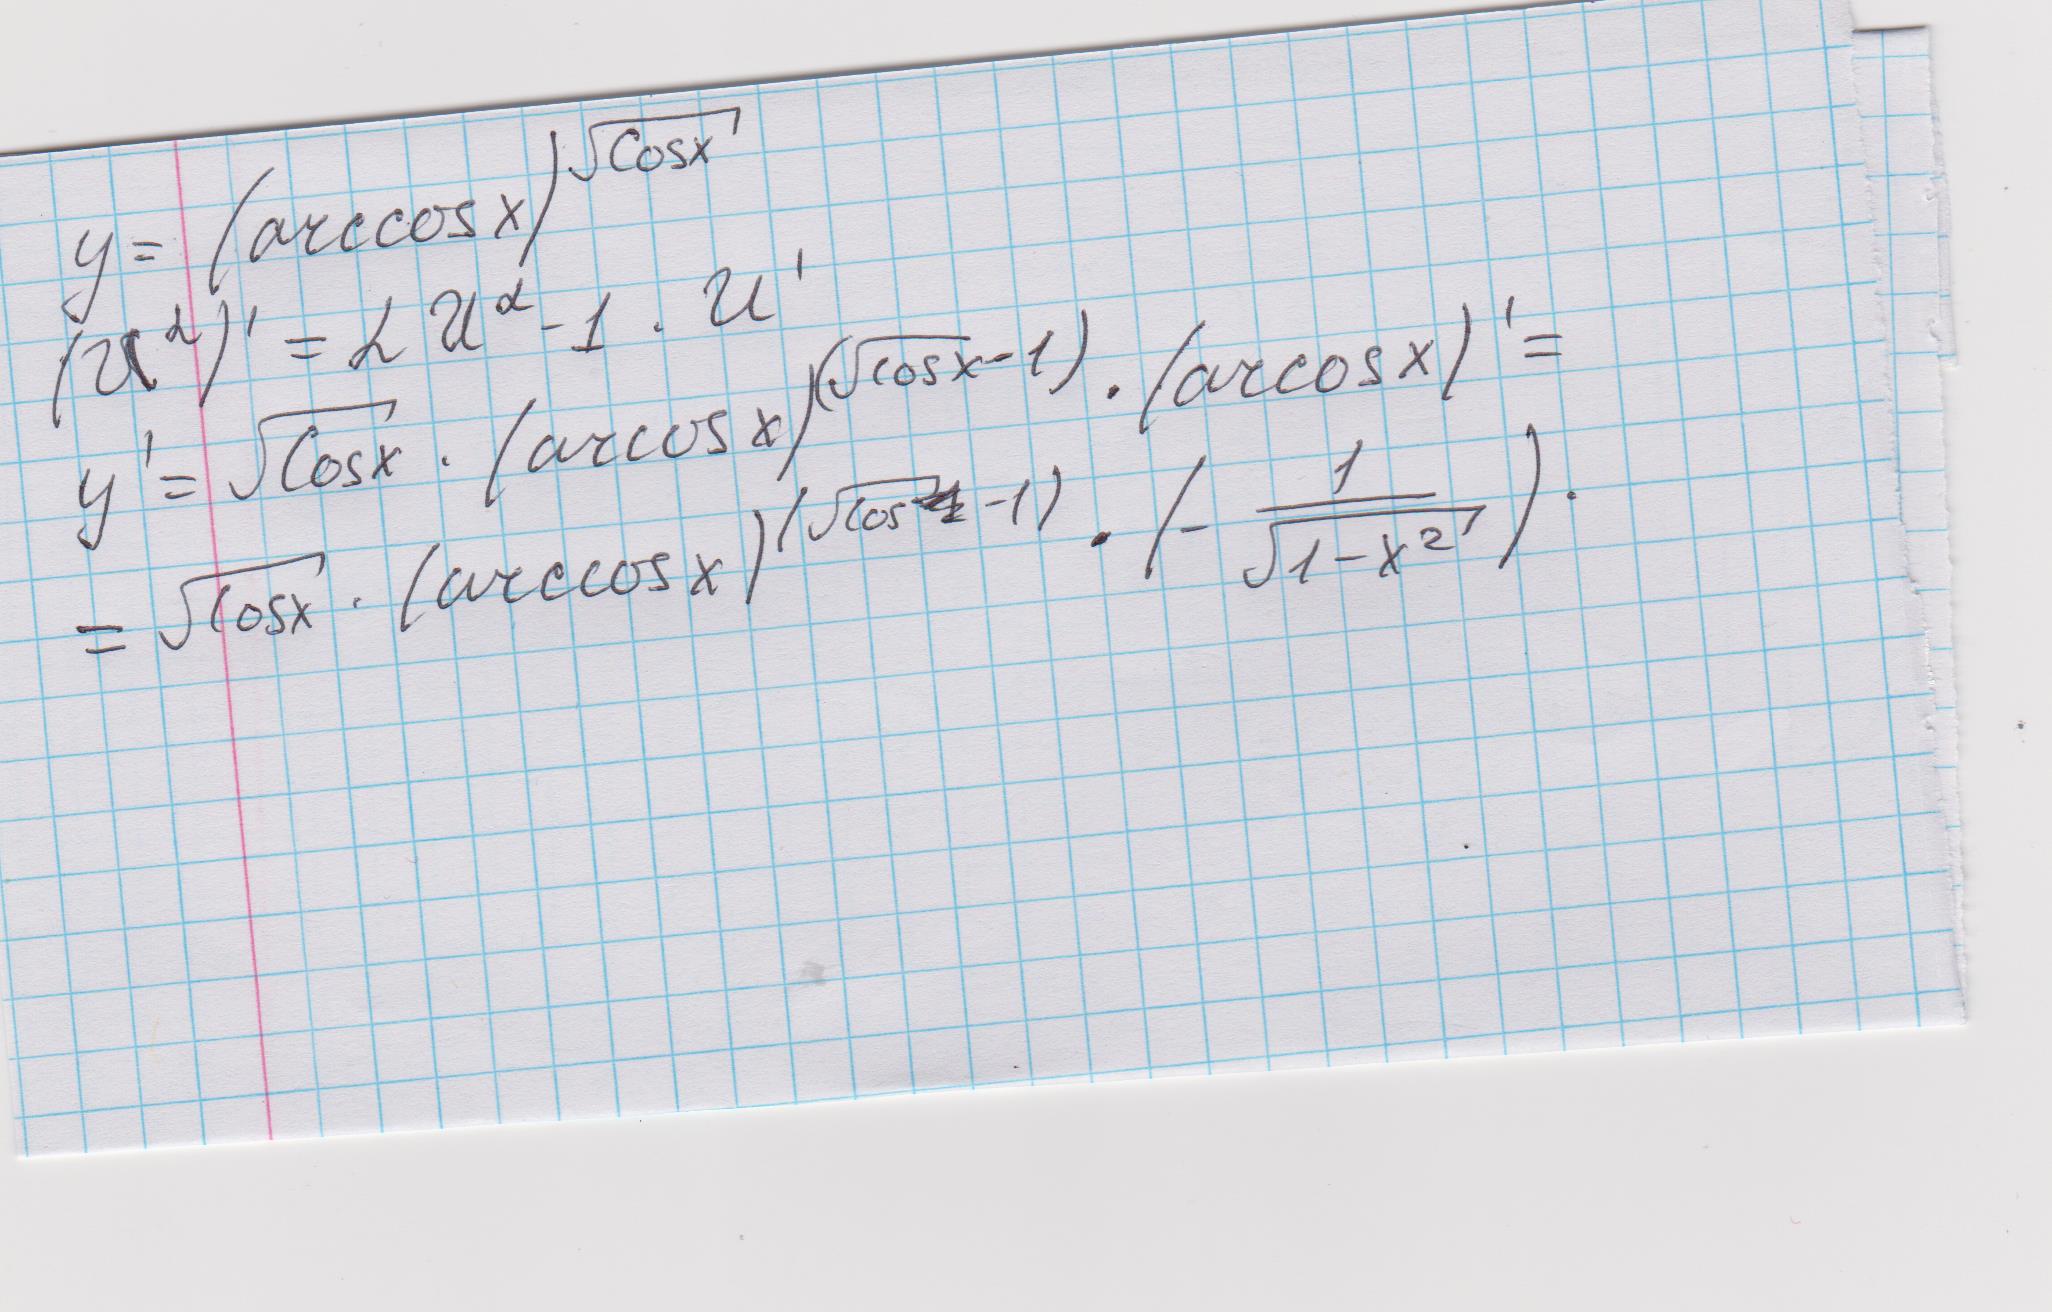 y = (arccosx)^√cosx
(u^α)' = α u^α-1 · u'
y' = √cosx · (arcosx)^(√cosx-1) · (arcosx)' =
= √cosx · (arccosx)^(√cos -1) · (- 1/√1-x²) ·